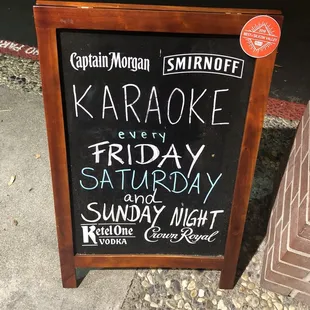 Captain Morgan SMIRNOFF
KARAOKE
every
FRIDAY
SATURDAY
and
SUNDAY NIGHT
Ketel One Crown Royal
VODKA